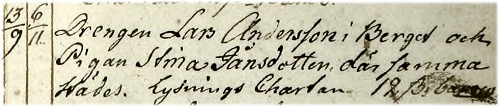 13/9 6/11 Drengen Lars Andersson i Berget och
Pigan Stina Jansdotter, där samma
städes. Lysnings Chartan 12